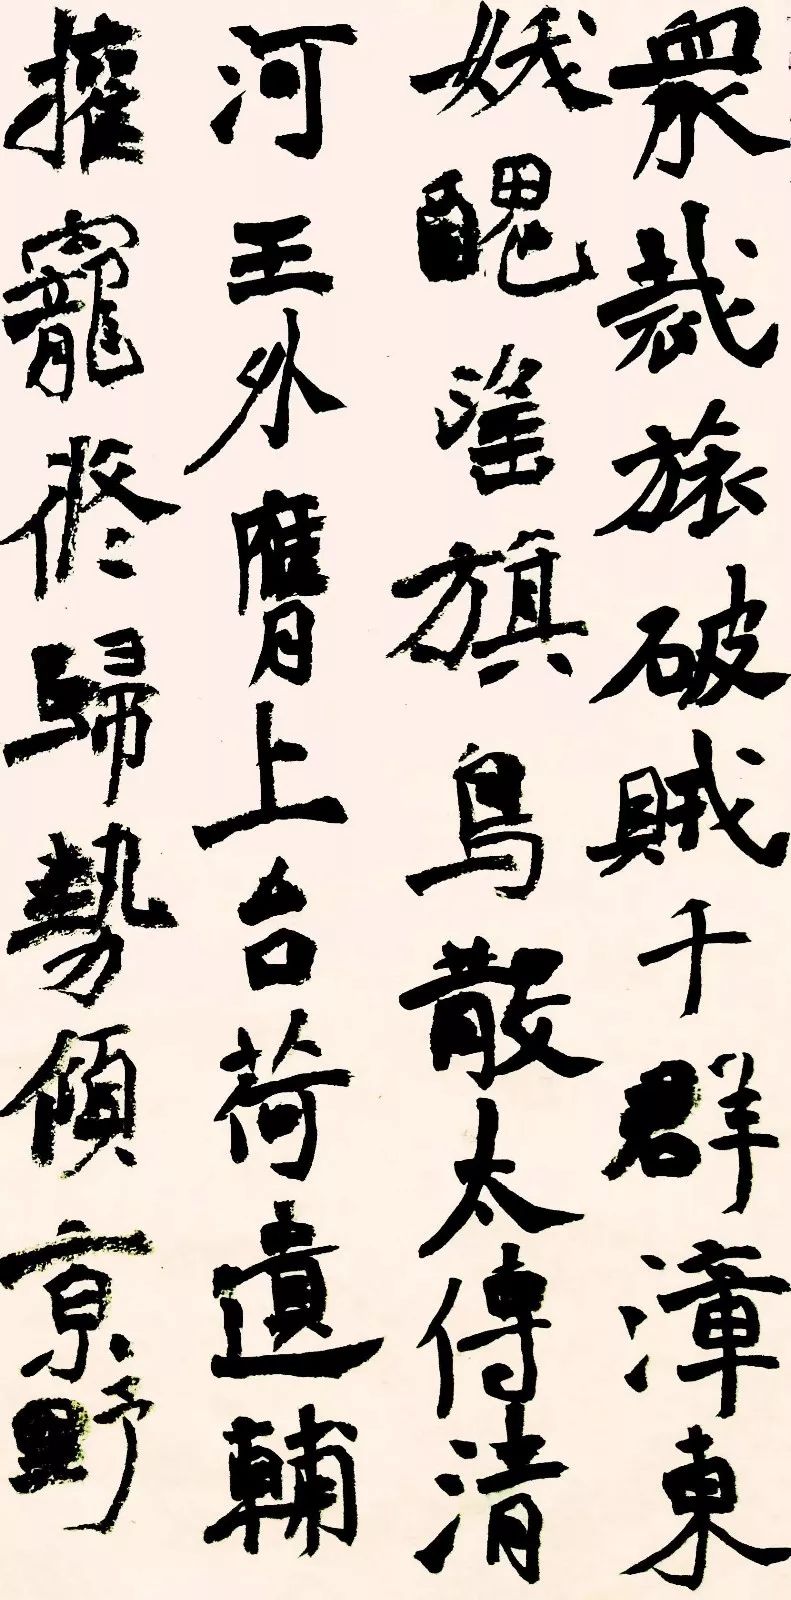 衆裁旅破賊千群漳東
妖醜滛旗鳥散太傅清
河王外膺上台荷遺輔
權寵攸歸勢傾京野